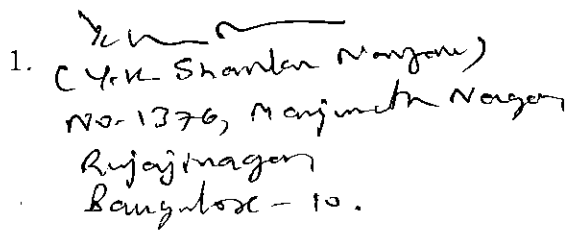 1.
(Y.K Shankar Narayan)
No. 1376, Manjunath Nagar,
Rajajinagar,
Bangalore - 10.